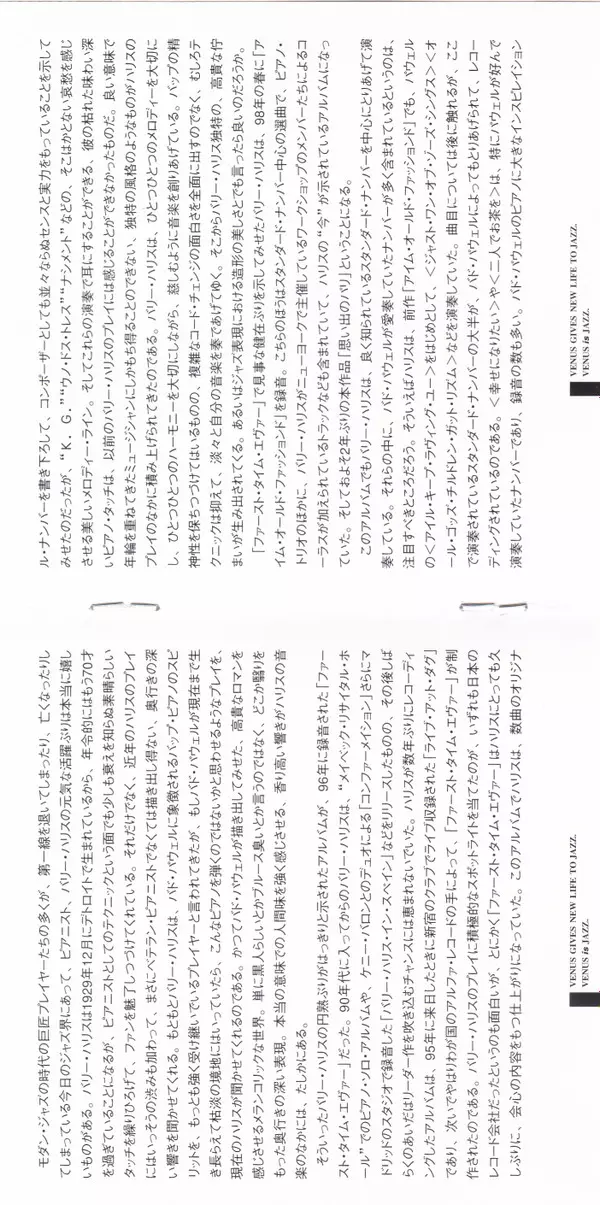 モダン・ジャズの時代の巨匠プレイヤーたちの多くが、第一線を退いてしまったり、亡くなったりし
てしまっている今日のジャズ界にあって、ピアニスト、バリー・ハリスの元気な活躍ぶりは本当に嬉し
いものがある。バリー・ハリスは1929年12月にデトロイトで生まれているから、年令的にはもう70才
を過ぎていることになるが、ピアニストとしてのテクニックという面でも少しも衰えを知らぬ素晴らしい
タッチを繰りひろげて、ファンを魅了しつづけてくれている。それだけでなく、近年のハリスのプレイ
にはいっそうの渋みも加わって、まさにベテラン・ピアニストでなくては描き出し得ない、奥行きの深
い響きを聞かせてくれる。もともとバリー・ハリスは、バド・パウエルに象徴されるバップ・ピアノのスピ
リットを、もっとも強く受け継いでいるプレイヤーと言われてきたが、もしバド・パウエルが現在まで生
き長らえて枯淡の境地にはいっていたら、こんなピアノを弾くのではないかと思わせるようなプレイを、
現在のハリスが聞かせてくれるのである。かつてバド・パウエルが描き出してみせた、高貴なロマンを
感じさせるメランコリックな世界。単に黒人らしいとかブルース臭いとか言うのではなく、どこか翳りを
もった奥行きの深い表現。本当の意味での人間味を強く感じさせる、香り高い響きがハリスの音
楽のなかには、たしかにある。
そういったバリー・ハリスの円熟ぶりがはっきりと示されたアルバムが、96年に録音された「ファー
スト・タイム・エヴァー」だった。90年代に入ってからのバリー・ハリスは、“メイベック・リサイタル・ホ
ール”でのピアノ・ソロ・アルバムや、ケニー・バロンとのデュオによる「コンファーメイション」さらにマ
ドリッドのスタジオで録音した「バリー・ハリス・イン・スペイン」などをリリースしたものの、その後しば
らくのあいだはリーダー作を吹き込むチャンスには恵まれないでいた。ハリスが数年ぶりにレコーディ
ングしたアルバムは、95年に来日したときに新宿のクラブでライブ収録された「ライブ・アット・ダグ」
であり、次いでやはりわが国のアルファ・レコードの手によって、「ファースト・タイム・エヴァー」が制
作されたのである。バリー・ハリスのプレイに積極的なスポットライトを当てたのが、いずれも日本の
レコード会社だったというのも面白いが、とにかく「ファースト・タイム・エヴァー」はハリスにとっても久
しぶりに、会心の内容をもつ仕上がりになっていた。このアルバムでハリスは、数曲のオリジナ
VENUS GIVES NEW LIFE TO JAZZ.
VENUS is JAZZ.
ル・ナンバーを書き下ろして、コンポーザーとしても並々ならぬセンスと実力をもっていることを示して
みせたのだったが、“K．G．”“ウノ・ドス・トレス”“ナシメント”などの、そこはかとない哀愁を感じ
させる美しいメロディー・ライン。そしてこれらの演奏で耳にすることができる、彼の枯れた味わい深
いピアノ・タッチは、以前のバリー・ハリスのプレイには感じることができなかったものだ。良い意味で
年輪を重ねてきたミュージシャンにしかもち得ることのできない、独特の風格のようなものがハリスの
プレイのなかに積み上げられてきたのである。バリー・ハリスは、ひとつひとつのメロディーを大切に
し、ひとつひとつのハーモニーを大切にしながら、慈しむように音楽を創りあげている。バップの精
神性を保ちつづけてはいるものの、複雑なコード・チェンジの面白さを全面に出すのでなく、むしろテ
クニックは抑えて、淡々と自分の音楽を奏であげてゆく。そこからバリー・ハリス独特の、高貴な佇
まいが生み出されてくる。あるいはジャズ表現における造形の美しさとでも言ったら良いのだろうか。
「ファースト・タイム・エヴァー」で見事な健在ぶりを示してみせたバリー・ハリスは、98年の春に「ア
イム・オールド・ファッションド」を録音。こちらのほうはスタンダード・ナンバー中心の選曲で、ピアノ・
トリオのほかに、バリー・ハリスがニューヨークで主催しているワークショップのメンバーたちによるコ
ーラスが加えられているトラックなども含まれていて、ハリスの“今”が示されているアルバムになっ
ていた。そしておよそ2年ぶりの本作品「思い出のパリ」ということになる。
このアルバムでもバリー・ハリスは、良く知られているスタンダード・ナンバーを中心にとりあげて演
奏している。それらの中に、バド・パウエルが愛奏していたナンバーが多く含まれているというのは、
注目すべきところだろう。そういえばハリスは、前作「アイム・オールド・ファッションド」でも、パウエル
の＜アイル・キープ・ラヴィング・ユー＞をはじめとして、＜ジャスト・ワン・オブ・ゾーズ・シングス＞＜オ
ール・ゴッズ・チルドレン・ガット・リズム＞などを演奏していた。曲目については後に触れるが、ここ
で演奏されているスタンダード・ナンバーの大半が、バド・パウエルによってもとりあげられて、レコー
ディングされているのである。＜幸せになりたい＞や＜二人でお茶を＞は、特にパウエルが好んで
演奏していたナンバーであり、録音の数も多い。バド・パウエルのピアノに大きなインスピレイション
VENUS GIVES NEW LIFE TO JAZZ.
VENUS is JAZZ.